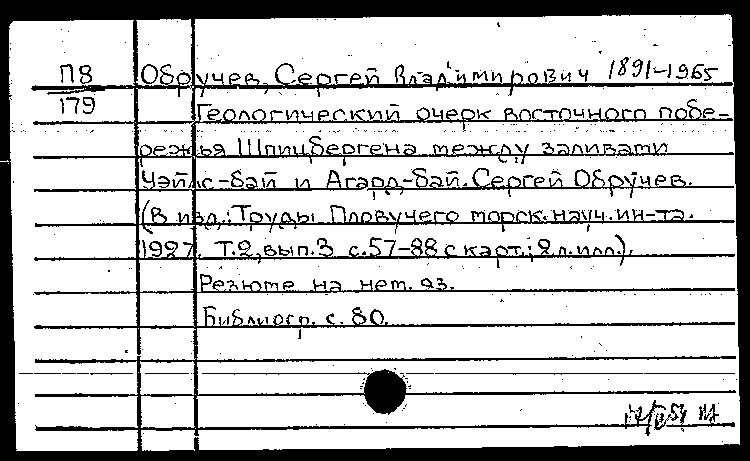 П8 Обручев, Сергей Владимирович 1891-1965
179 Геологический очерк восточного побе-
режья Шпицбергена между заливами
Уэйлс-бай и Агард-бай. Сергей Обручев.
(В изд.: Труды Пловучего морск. науч. ин-та.
1927. Т.2, вып.3 с.57-88 с карт.; 2 л. илл.).
Резюме на нем. яз.
Библиогр. с. 80.